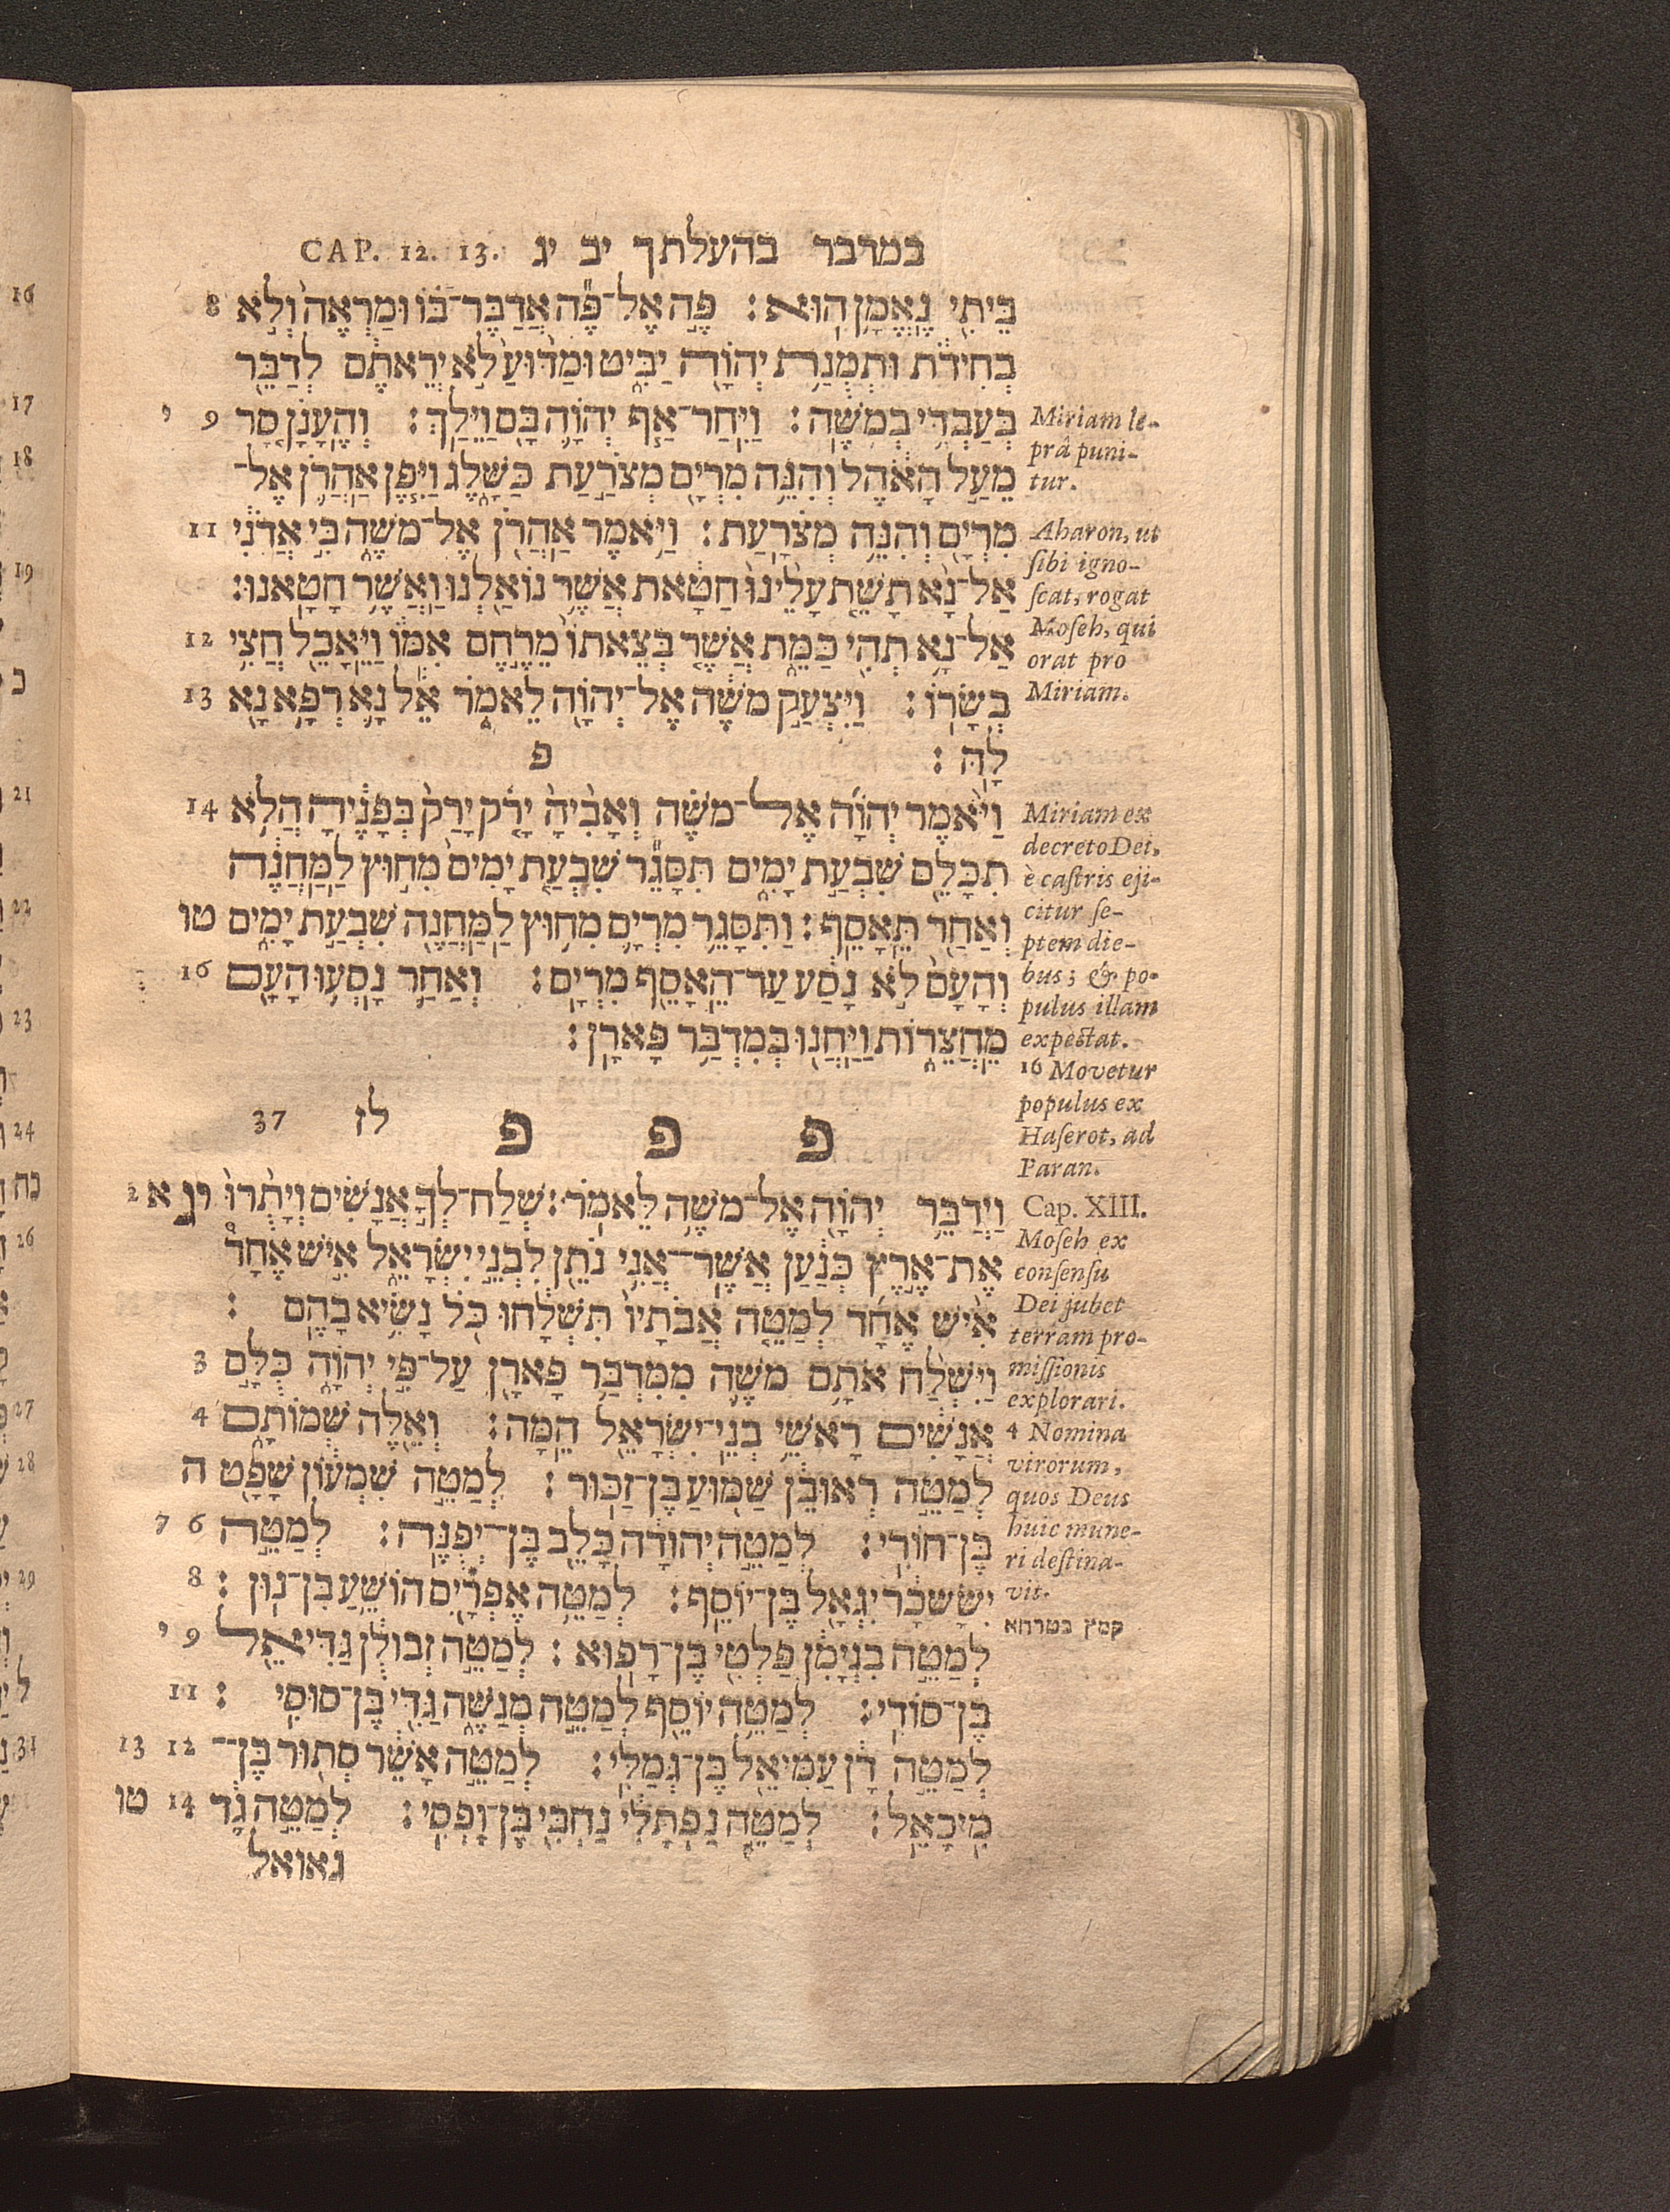 CAP. 12. 13. במדבר בהעלתך יב יג
בֵּיתִ֖י נֶאֱמָ֥ן הֽוּא׃ פֶּ֣ה אֶל־פֶּ֞ה אֲדַבֶּר־בּ֗וֹ וּמַרְאֶה֙ וְלֹ֣א 8
בְחִידֹ֔ת וּתְמֻנַ֥ת יְהוָ֖ה יַבִּ֑יט וּמַדּ֙וּעַ֙ לֹ֣א יְרֵאתֶ֔ם לְדַבֵּ֖ר
בְּעַבְדִּ֥י בְמֹשֶֽׁה׃ וַיִּֽחַר־אַ֧ף יְהוָ֛ה בָּ֖ם וַיֵּלַֽךְ׃ וְהֶעָנָ֗ן סָ֚ר 9 י
מֵעַ֣ל הָאֹ֔הֶל וְהִנֵּ֥ה מִרְיָ֖ם מְצֹרַ֣עַת כַּשָּׁ֑לֶג וַיִּ֧פֶן אַהֲרֹ֛ן אֶל־
מִרְיָ֖ם וְהִנֵּ֥ה מְצֹרָֽעַת׃ וַיֹּ֥אמֶר אַהֲרֹ֖ן אֶל־מֹשֶׁ֑ה בִּ֣י אֲדֹנִ֔י 11
אַל־נָ֨א תָשֵׁ֤ת עָלֵ֙ינוּ֙ חַטָּ֔את אֲשֶׁ֥ר נוֹאַ֖לְנוּ וַאֲשֶׁ֥ר חָטָֽאנוּ׃
אַל־נָ֥א תְהִ֖י כַּמֵּ֑ת אֲשֶׁ֤ר בְּצֵאתוֹ֙ מֵרֶ֣חֶם אִמּ֔וֹ וַיֵּאָכֵ֖ל חֲצִ֥י 12
בְשָׂרֽוֹ׃ וַיִּצְעַ֣ק מֹשֶׁ֔ה אֶל־יְהוָ֖ה לֵאמֹ֑ר אֵ֕ל נָ֛א רְפָ֥א נָ֖א 13
לָֽהּ׃ פ
וַיֹּ֨אמֶר יְהוָ֜ה אֶל־מֹשֶׁ֗ה וְאָבִ֙יהָ֙ יָרֹ֤ק יָרַק֙ בְּפָנֶ֔יהָ הֲלֹ֥א 14
תִכָּלֵ֖ם שִׁבְעַ֣ת יָמִ֑ים תִּסָּגֵ֞ר שִׁבְעַ֤ת יָמִים֙ מִח֣וּץ לַֽמַּחֲנֶ֔ה
וְאַחַ֖ר תֵּאָסֵֽף׃ וַתִּסָּגֵ֥ר מִרְיָ֛ם מִח֥וּץ לַֽמַּחֲנֶ֖ה שִׁבְעַ֣ת יָמִ֑ים טו
וְהָעָם֙ לֹ֣א נָסַ֔ע עַד־הֵאָסֵ֖ף מִרְיָֽם׃ וְאַחַ֛ר נָסְע֥וּ הָעָ֖ם 16
מֵחֲצֵר֑וֹת וַֽיַּחֲנ֖וּ בְּמִדְבַּ֥ר פָּארָֽן׃
פ פ פ לז 37
וַיְדַבֵּ֥ר יְהוָ֖ה אֶל־מֹשֶׁ֥ה לֵּאמֹֽר׃ שְׁלַח־לְךָ֣ אֲנָשִׁ֗ים וְיָתֻ֙רוּ֙ יג א 2
אֶת־אֶ֣רֶץ כְּנַ֔עַן אֲשֶׁר־אֲנִ֥י נֹתֵ֖ן לִבְנֵ֣י יִשְׂרָאֵ֑ל אִ֣ישׁ אֶחָד֩
אִ֨ישׁ אֶחָ֜ד לְמַטֵּ֤ה אֲבֹתָיו֙ תִּשְׁלָ֔חוּ כֹּ֖ל נָשִׂ֥יא בָהֶֽם׃
וַיִּשְׁלַ֨ח אֹתָ֥ם מֹשֶׁ֛ה מִמִּדְבַּ֥ר פָּארָ֖ן עַל־פִּ֣י יְהוָ֑ה כֻּלָּ֣ם 3
אֲנָשִׁ֔ים רָאשֵׁ֥י בְנֵֽי־יִשְׂרָאֵ֖ל הֵֽמָּה׃ וְאֵ֖לֶּה שְׁמוֹתָ֑ם 4
לְמַטֵּ֣ה רְאוּבֵ֔ן שַׁמּ֖וּעַ בֶּן־זַכּֽוּר׃ לְמַטֵּ֣ה שִׁמְע֔וֹן שָׁפָ֖ט ה
בֶּן־חוֹרִֽי׃ לְמַטֵּ֣ה יְהוּדָ֔ה כָּלֵ֖ב בֶּן־יְפֻנֶּֽה׃ לְמַטֵּ֣ה 6 7
יִשָּׂשכָ֔ר יִגְאָ֖ל בֶּן־יוֹסֵֽף׃ לְמַטֵּ֥ה אֶפְרָ֖יִם הוֹשֵׁ֥עַ בִּן־נֽוּן׃ 8
לְמַטֵּ֣ה בִנְיָמִ֔ן פַּלְטִ֖י בֶּן־רָפֽוּא׃ לְמַטֵּ֣ה זְבוּלֻ֔ן גַּדִּיאֵ֖ל 9 י
בֶּן־סוֹדִֽי׃ לְמַטֵּ֥ה יוֹסֵ֖ף לְמַטֵּ֣ה מְנַשֶּׁ֑ה גַּדִּ֖י בֶּן־סוּסִֽי׃ 11
לְמַטֵּ֣ה דָ֔ן עַמִּיאֵ֖ל בֶּן־גְּמַלִּֽי׃ לְמַטֵּ֣ה אָשֵׁ֔ר סְת֖וּר בֶּן־ 12 13
מִֽיכָאֵֽל׃ לְמַטֵּ֣ה נַפְתָּלִ֔י נַחְבִּ֖י בֶּן־וָפְסִֽי׃ לְמַטֵּ֣ה גָ֔ד 14 טו
גאואל
Miriam le-
prâ puni-
tur.
Aharon, ut
sibi igno-
scat, rogat
Moseh, qui
orat pro
Miriam.
Miriam ex
decreto Dei,
è castris eji-
citur se-
ptem die-
bus; & po-
pulus illam
expectat.
16 Movetur
populus ex
Haserot, ad
Paran.
Cap. XIII.
Moseh ex
consensu
Dei jubet
terram pro-
missionis
explorari.
4 Nomina
virorum,
quos Deus
huic mune-
ri destina-
vit.
קמץ בטרחא
16
17
18
19
21
22
23
24
כח
26
27
28
29
ל
31